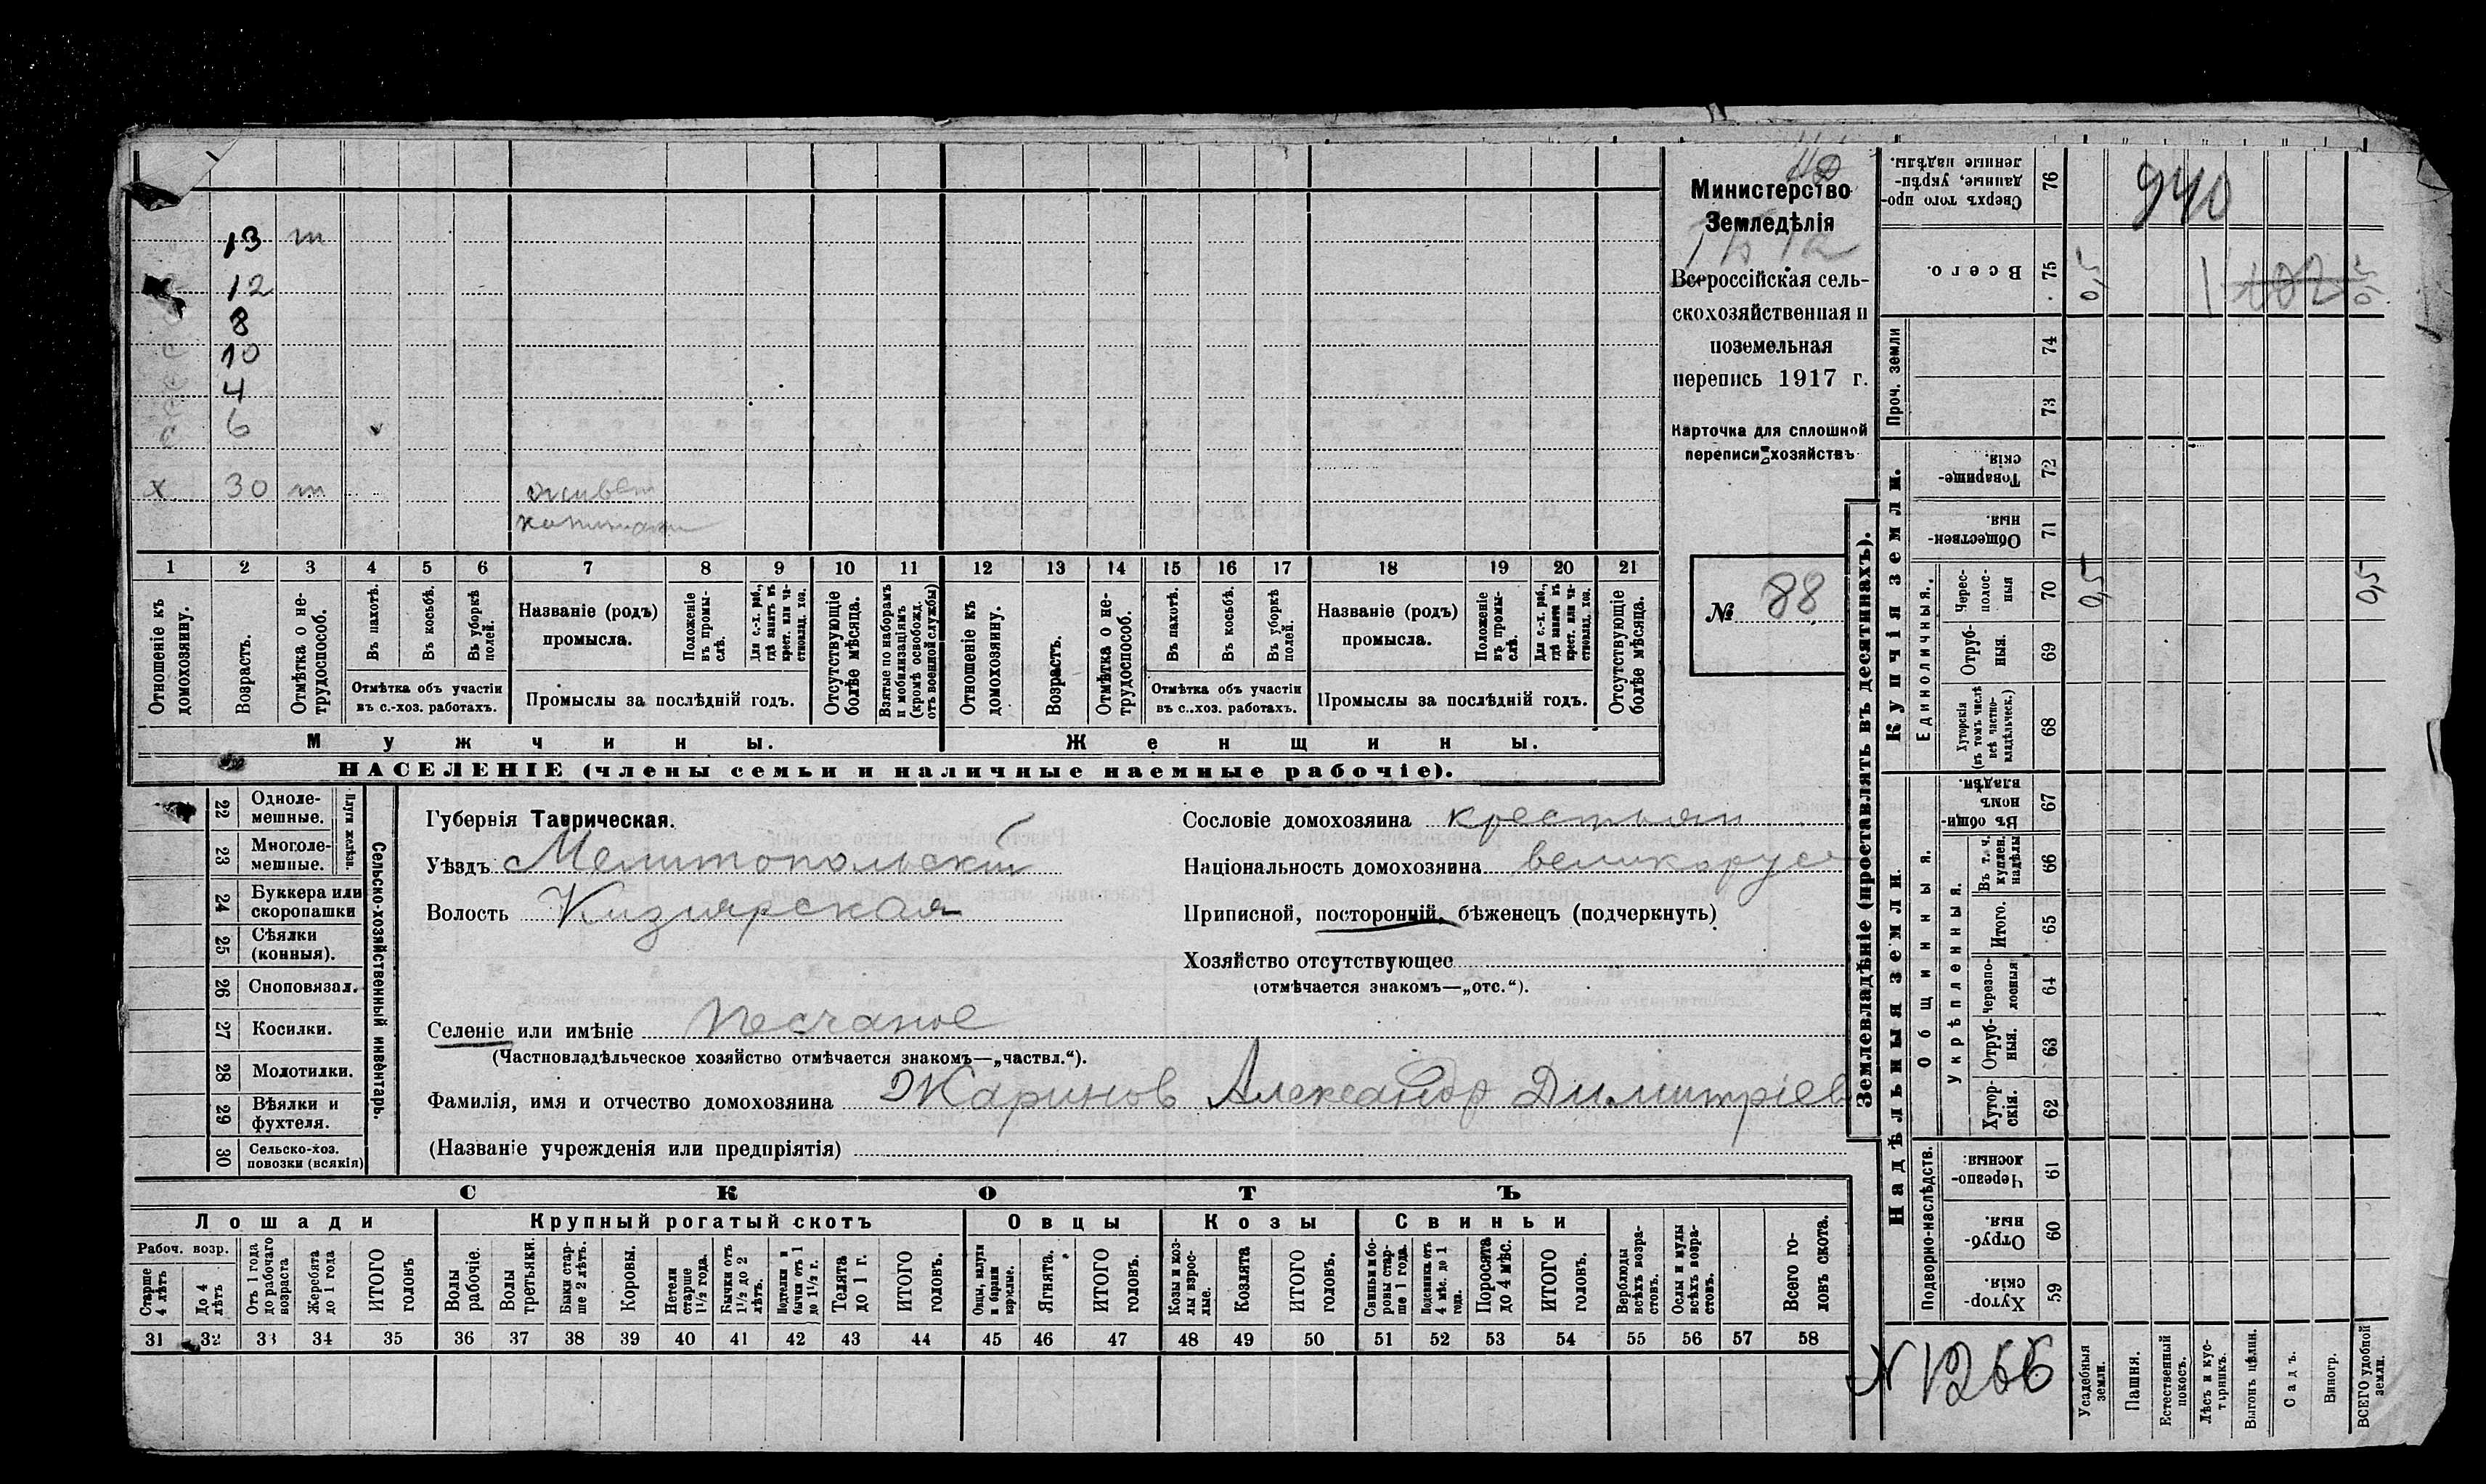 940
Министерство
Земледѣлія
Всероссійская сель-
скохозяйственная и
поземельная
перепись 1917 г.
Карточка для сплошной
переписи хозяйствъ
№ 88
13 т
12
8
10
4
6
х 30 т живет
1 2 3 4 5 6 7 8 9 10 11 12 13 14 15 16 17 18 19 20 21
Отношеніе къ домохозяину.
Возрастъ.
Отмѣтка о не-трудоспособ.
Въ пахотѣ.
Въ косьбѣ.
Въ уборкѣ полей.
Отмѣтка объ участіи въ с.-хоз. работахъ.
Названіе (родъ) промысла.
Положеніе въ промы-слѣ.
Для с.-х. раб., гдѣ занятъ въ крест. или ча-стновлад. хоз.
Промыслы за послѣдній годъ.
Отсутствующіе болѣе мѣсяца.
Взятые по наборамъ и мобилизаціямъ (кромѣ освобожд. отъ военной службы)
Отношеніе къ домохозяину.
Возрастъ.
Отмѣтка о не-трудоспособ.
Въ пахотѣ.
Въ косьбѣ.
Въ уборкѣ полей.
Отмѣтка объ участіи въ с..хоз. работахъ.
Названіе (родъ) промысла.
Положеніе въ промы-слѣ.
Для с.-х. раб., гдѣ занятъ въ крест. или ча-стновлад. хоз.
Промыслы за послѣдній годъ.
Отсутствующіе болѣе мѣсяца.
Мужчины.
Женщины.
НАСЕЛЕНІЕ (члены семьи и наличные наемные рабочіе).
22 Одноле-мешные.
23 Многоле-мешные.
Плуги желѣзн.
24 Буккера или скоропашки
25 Сѣялки (конныя).
26 Сноповязал.
27 Косилки.
28 Молотилки.
29 Вѣялки и фухтеля.
30 Сельско-хоз. повозки (всякія)
Сельско-хозяйственный инвентарь.
Губернія Таврическая.
Уѣздъ Мелитопольскій
Волость Кизиярская
Селеніе или имѣніе Песчаное
(Частновладѣльческое хозяйство отмѣчается знакомъ—„частвл.“).
Фамилія, имя и отчество домохозяина Жаринов Александр Димитріев
(Названіе учрежденія или предпріятія)
Сословіе домохозяина крестьян
Національность домохозяина великорусс
Приписной, посторонній, бѣженецъ (подчеркнуть)
Хозяйство отсутствующее
(отмѣчается знакомъ—„отс.“).
СКОТЪ
Лошади
Крупный рогатый скотъ
Овцы
Козы
Свиньи
Рабоч. возр.
Старше 4 лѣтъ
До 4 лѣтъ
Отъ 1 года до рабочаго возраста
Жеребята до 1 года
ИТОГО головъ
Волы рабочіе.
Волы третьяки.
Быки стар-ше 2 лѣтъ.
Коровы.
Нетели старше 1½ года.
Бычки отъ 1½ до 2 лѣтъ.
Подтелки и бычки отъ 1 до 1½ г.
Телята до 1 г.
ИТОГО головъ.
Овцы, валухи и бараны взрослые.
Ягнята.
ИТОГО головъ.
Козы и коз-лы взрос-лые.
Козлята
ИТОГО головъ.
Свиньи и бо-ровы стар-ше 1 года.
Подсвинки отъ 4 мѣс. до 1 года.
Поросята до 4 мѣс.
ИТОГО головъ.
Верблюды всѣхъ возра-стовъ.
Ослы и мулы всѣхъ возра-стовъ.
Всего го-ловъ скота.
31 32 33 34 35 36 37 38 39 40 41 42 43 44 45 46 47 48 49 50 51 52 53 54 55 56 57 58
Землевладѣніе (проставлять въ десятинахъ).
Надѣльныя земли.
Купчія земли.
Проч. земли
Подворно-наслѣдств.
Общинныя.
Укрѣпленныя.
Единоличныя.
76 Сверхъ того про-данные, укрѣп-ленные надѣлы.
75 Всего. 0,5 0,5
74
73
72 Товарище-скія.
71 Обществен-ныя.
70 Черес-полос-ныя 0,5 0,5
69 Отруб-ныя.
68 Хуторскія (въ томъ числѣ всѣ частно-владѣльческ.)
67 Въ общин-номъ владѣн.
66 Въ т. ч. куплен. надѣлы
65 Итого.
64 Черезпо-лосныя
63 Отруб-ныя.
62 Хутор-скія.
61 Черезпо-лосныя.
60 Отруб-ныя.
59 Хутор-скія.
N 1266
Усадебныя земли.
Пашня.
Естественный покосъ.
Лѣсъ и кус-тарникъ.
Выгонъ цѣлин.
Садъ.
Виногр.
ВСЕГО удобной земли.